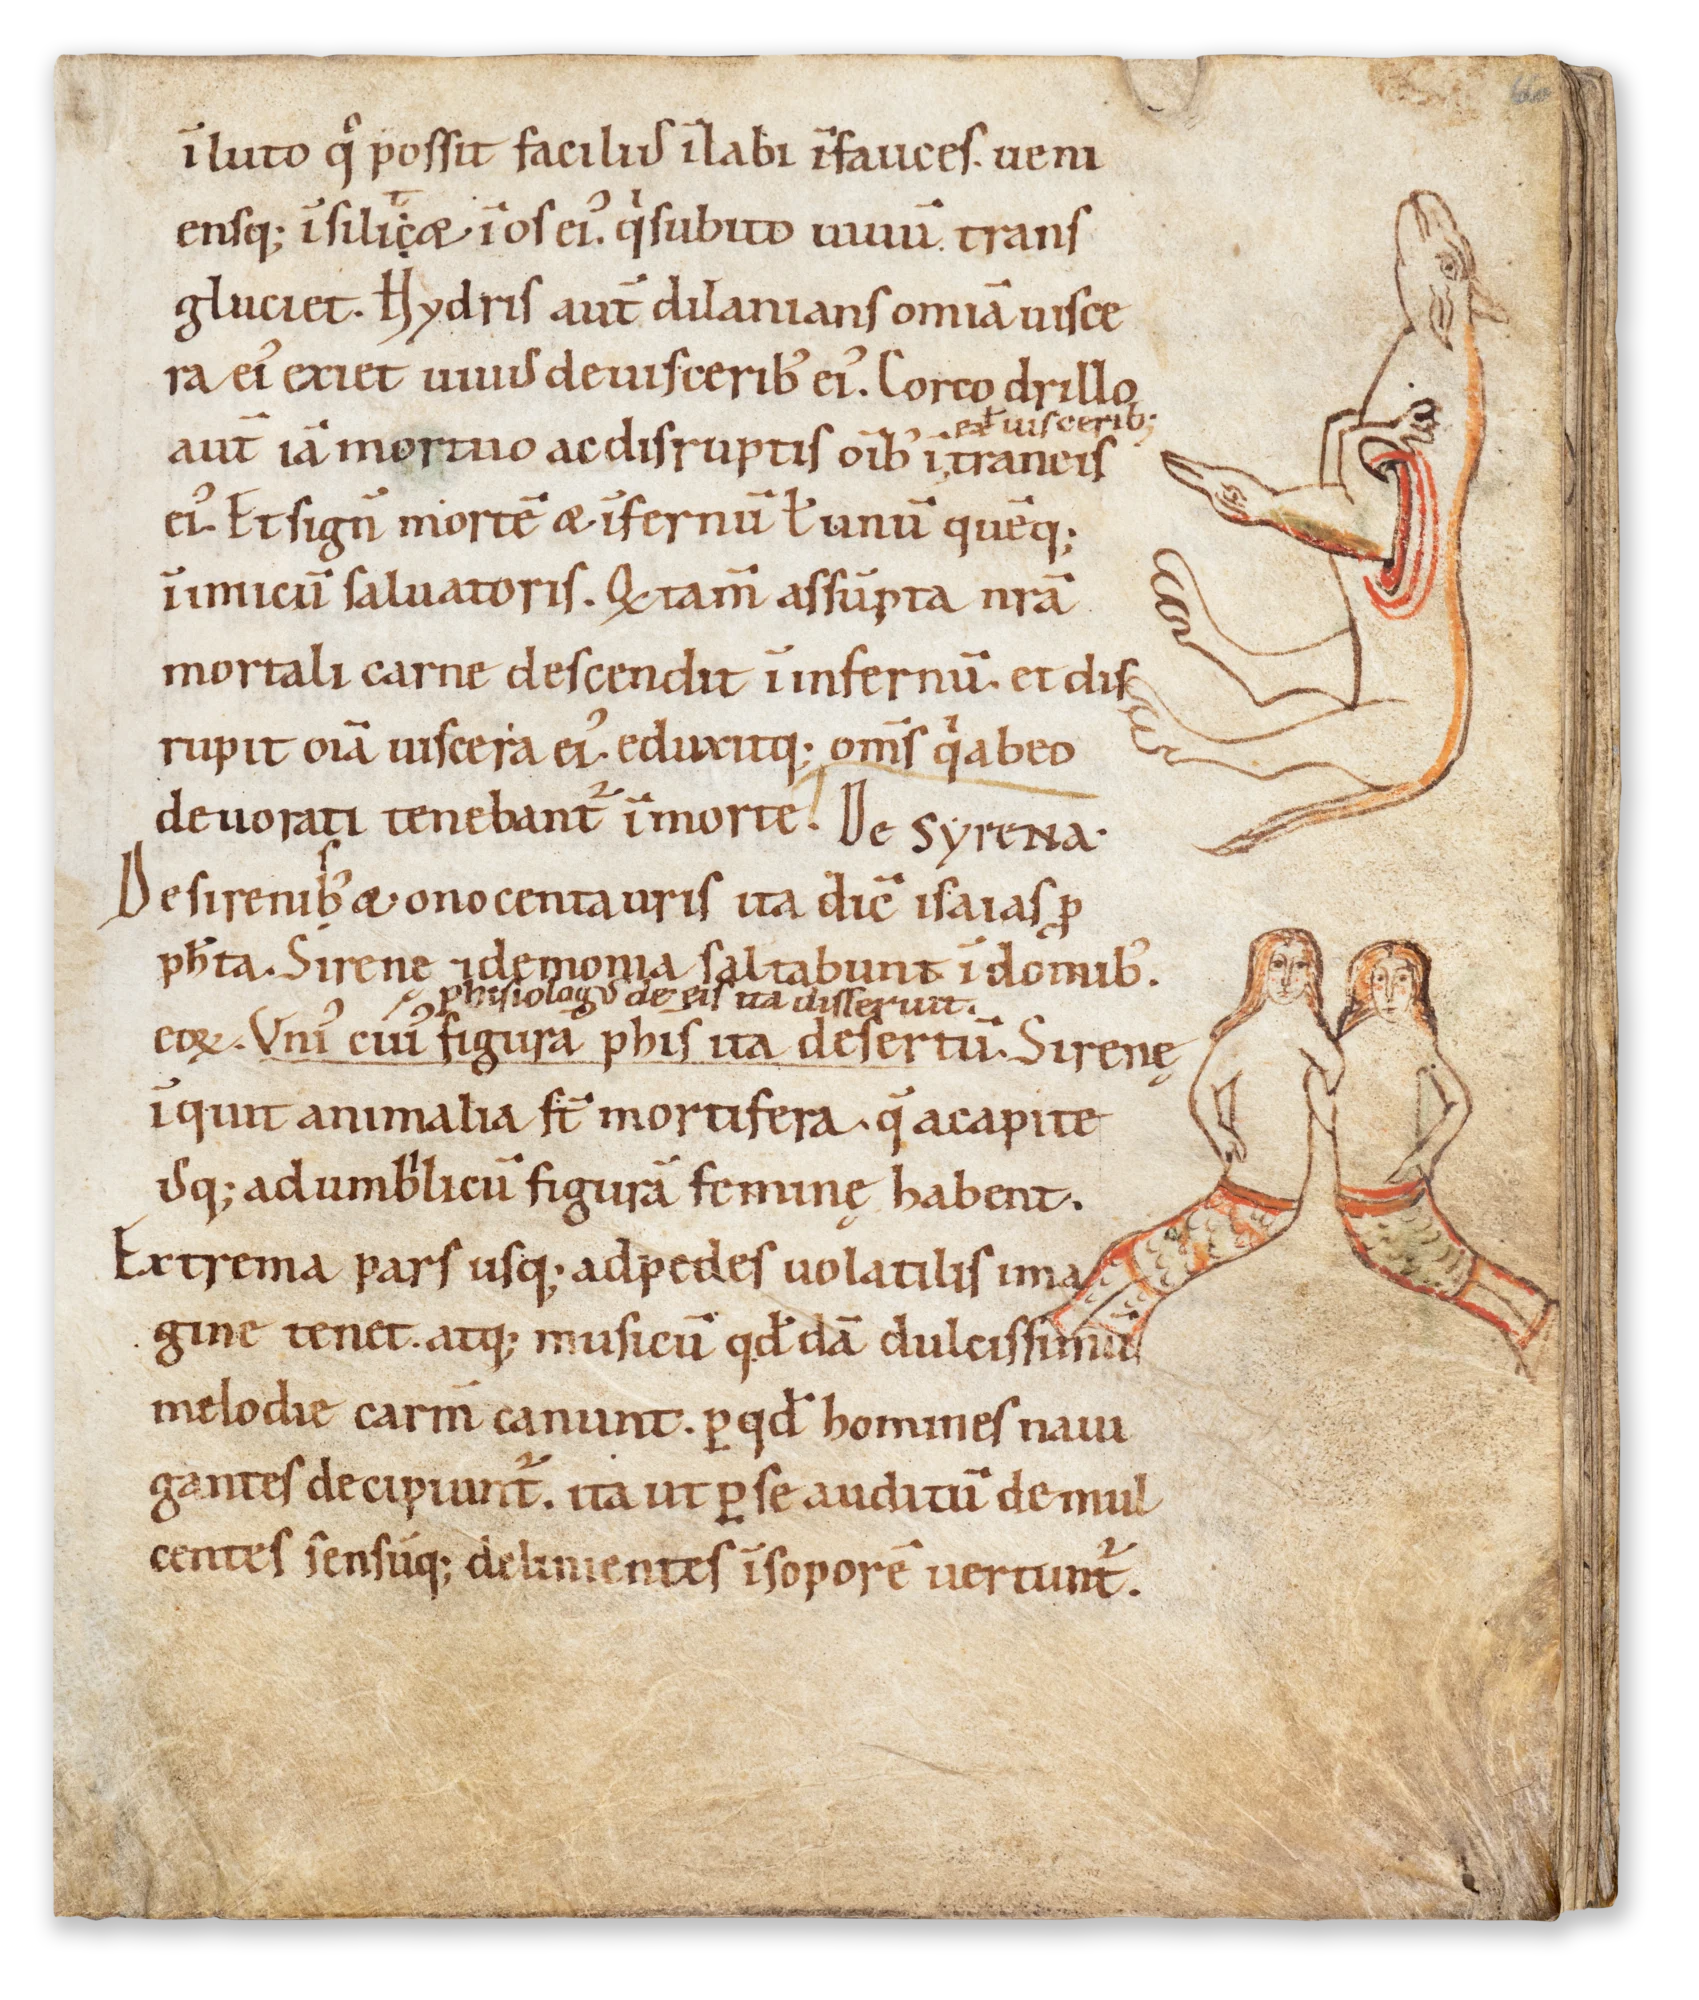 ī luto qͥ possit faciliꝰ īlabi īfauces. ueni
ensq; īsilic&æ ī os ei᾽. qͥ subito uiuū trans
gluciet. Hydris aut̄ dilanians omiā uisce
ra ei᾽ exiet uiuus de uiscerib᾽ ei᾽. Corcodrillo
ex uiscerib;
aut̄ iā mortuo ac disruptis oīb᾽ ītraneis
ei᾽. Et sign̄ mortē æ īfernū ł unū quēq;
īimicū saluatoris. Qꝫ tam̄ assūpta nrā
mortali carne descendit ī infernū. et dis
rupit oīā uiscera ei᾽. eduxitq; om̄s qͥ ab eo
deuorati tenebant᾽ ī morte. De syrena.
De sirenib᾽ æ onocentauris ita dic̄ isaias ꝓ
ph̄ta. Sirenę ⁊ demonia saltabunt ī domib᾽.
phisiologꝰ de eis ita disseruit.
eoꝝ. Vni᾽ cui᾽ figura phis ita desertū. Sirenę
īquit animalia st̄ mortifera. q̄ a capite
usq; ad umbͥlicū figurā feminę habent.
Extrema pars usq; ad pedes uolatilis ima
gine tenet. atq; musicū qd̄dā dulcissimū
melodie carm̄ canunt. ꝑ qd̄ homines naui
gantes decipiunt᾽. ita ut ꝑ se auditū demul
centes sensúq; delinientes īsoporē uertunt᾽.